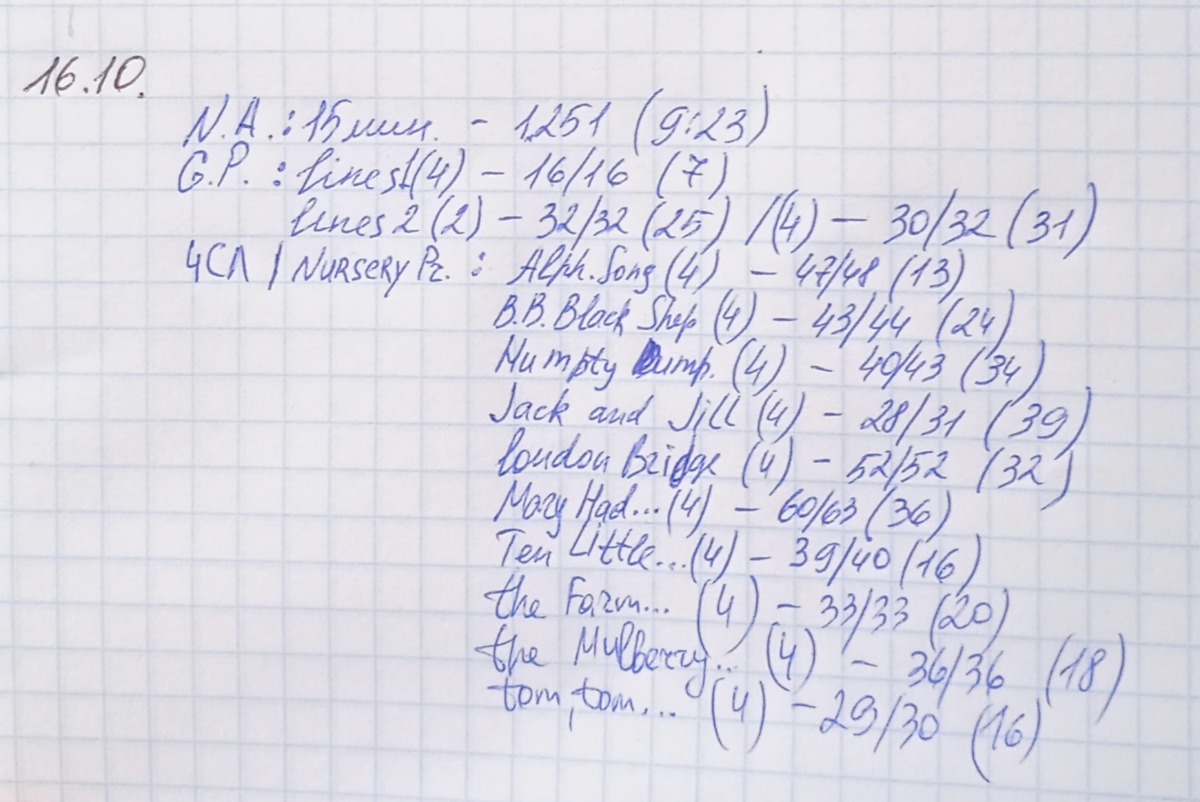 16.10.
N.A.: 15 мин. - 1251 (9:23)
G.P.: lines1(4) - 16/16 (7)
lines 2 (2) - 32/32 (25) / (4) - 30/32 (31)
4СЛ / NURSERY Pr. : Alph. Song (4) - 47/48 (13)
B.B. Black Shep (4) - 43/44 (24)
Humpty Dump. (4) - 40/43 (34)
Jack and Jill (4) - 28/31 (39)
london Bridge (4) - 52/52 (32)
Mary Had... (4) - 60/63 (36)
Ten Little... (4) - 39/40 (16)
the Farm... (4) - 33/33 (20)
the Mulberry... (4) - 36/36 (18)
tom, tom... (4) - 29/30 (16)